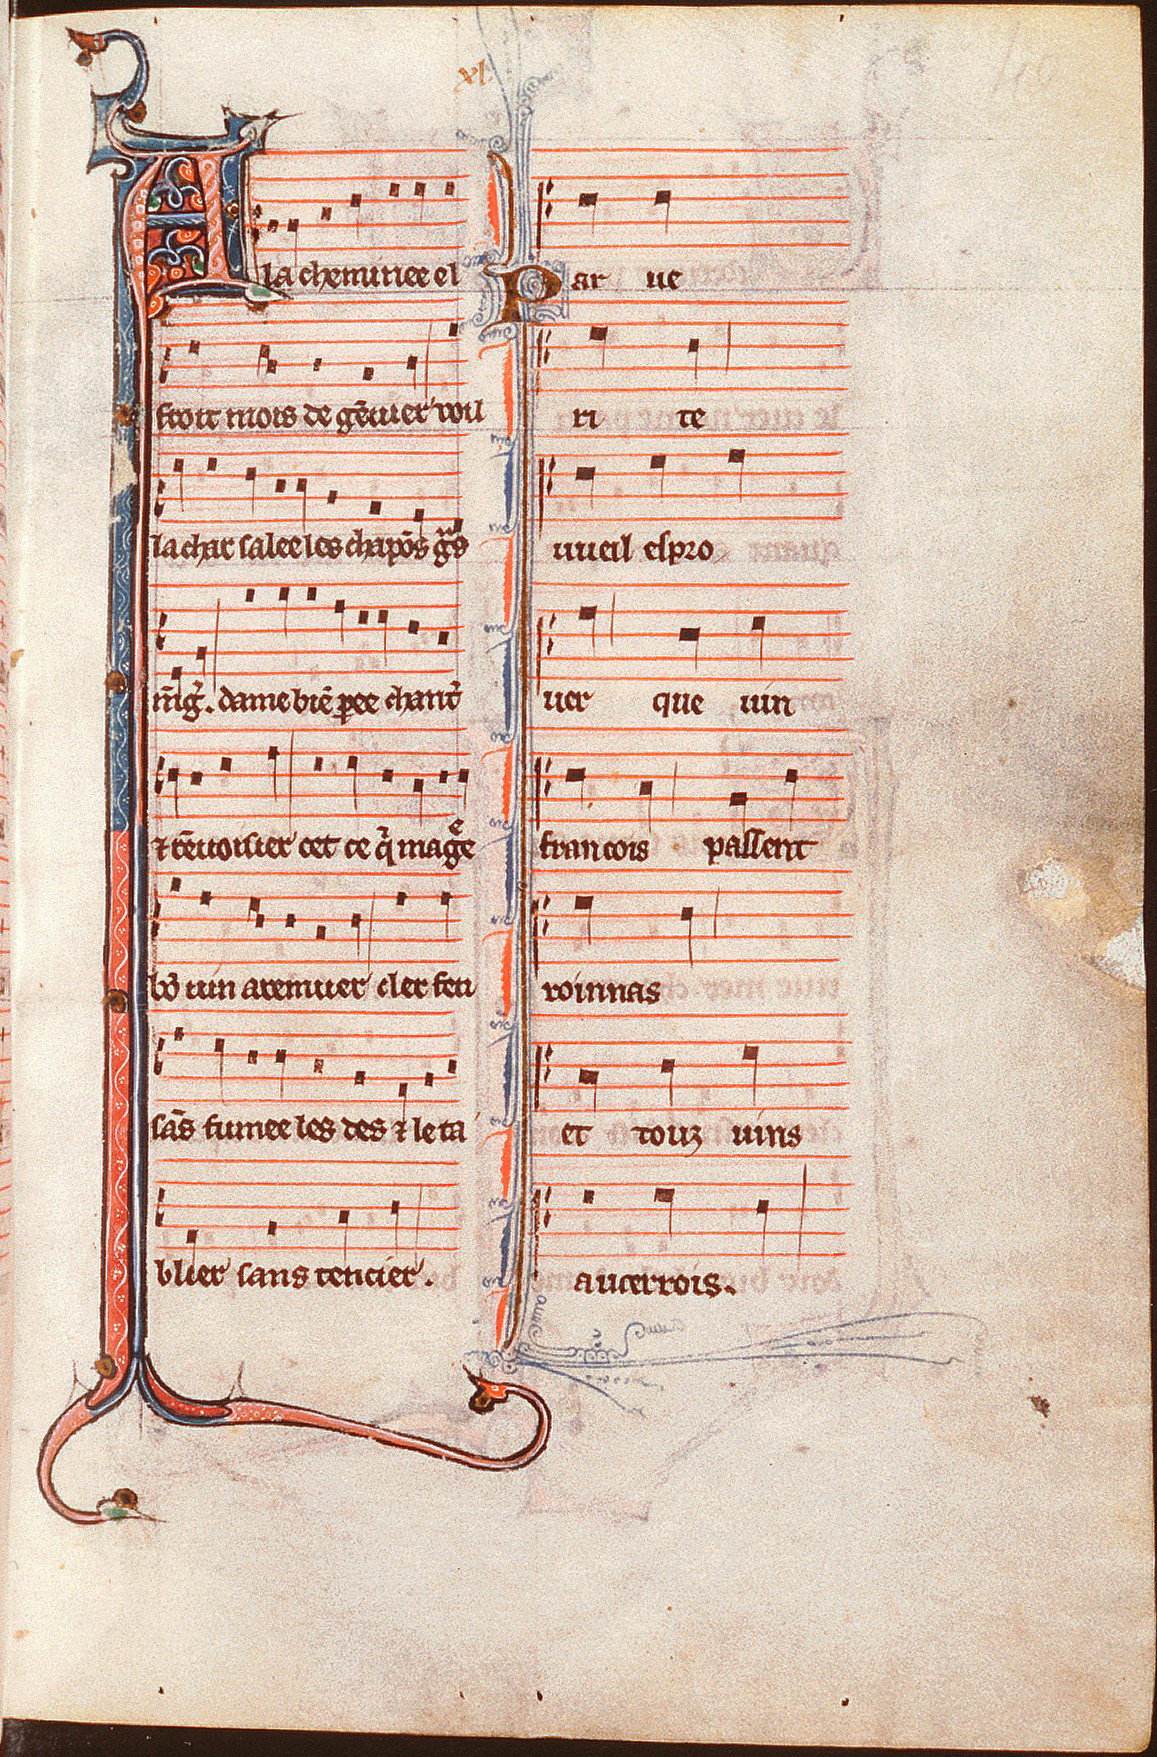 xl
A la cheminee el
froit mois de gēuier voil
la char salee les chapōs g̃s
mãg̃. dame biē pee chant᷑
⁊ rēuoisier cest ce q̃ mag̃e
bō uin a remuer cler feu
sãs fumee les des ⁊ le ta
blier sans tencier.
Par ue
ri te
uueil espro
uer que uin
francois passent
roinnas
et touz uins
aucerrois.